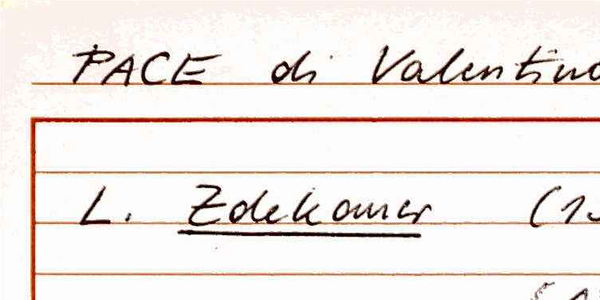 PACE di Valentino
L. Zdekauer (1